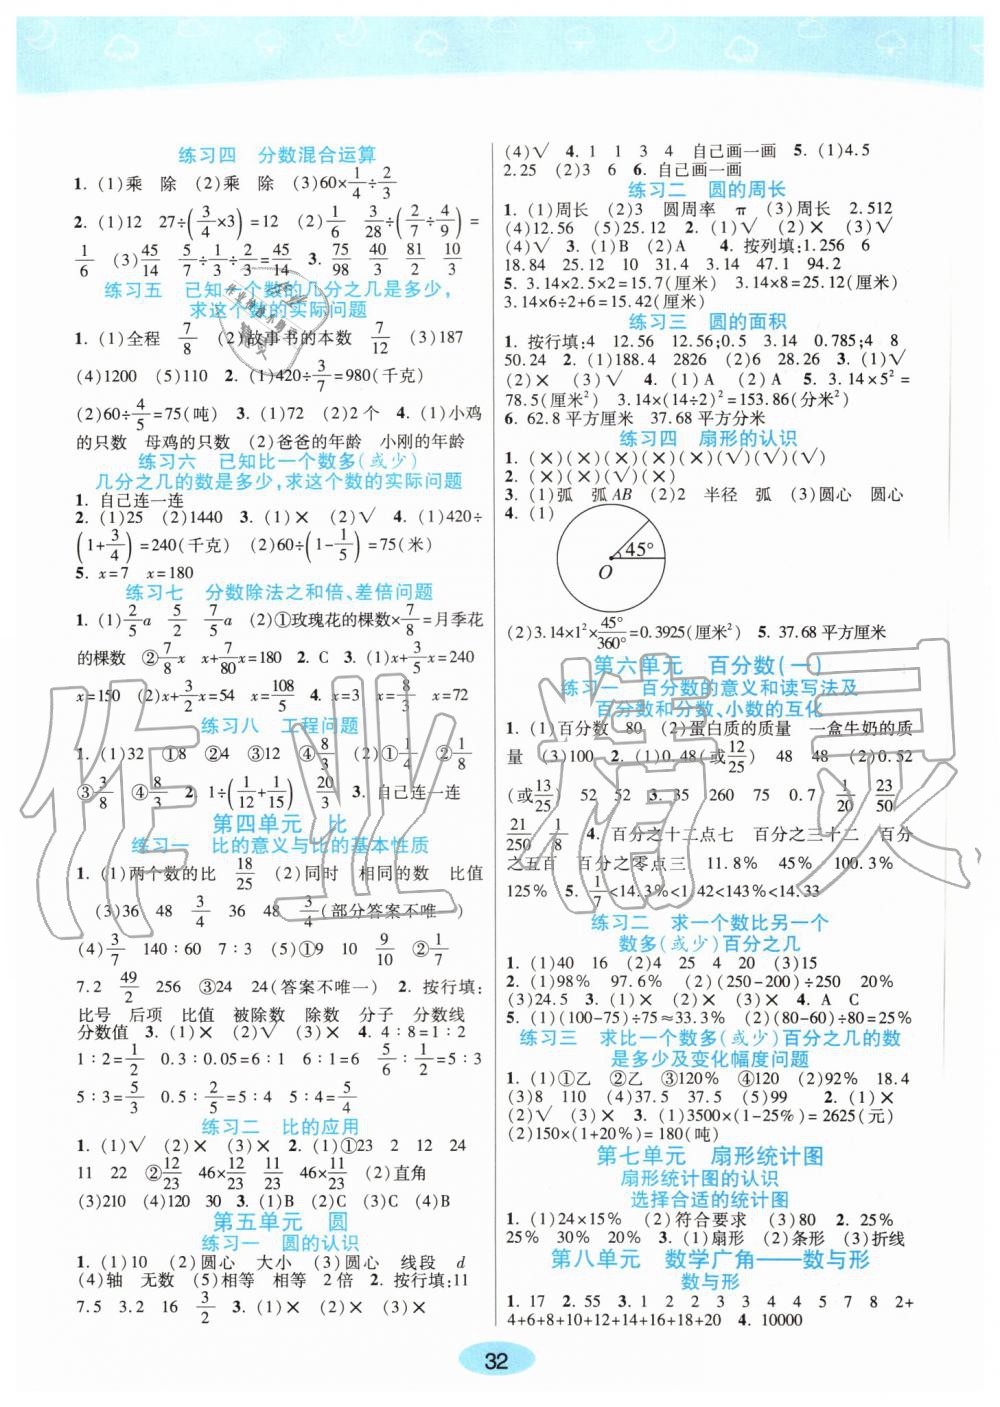 练习四 分数混合运算
1. (1)乘 除 (2)乘 除 (3)60×1/4÷2/3
2. (1)12 27÷(3/4×3)=12 (2)1/6 3/28÷(2/7÷4/9)=
1/6 (3)45/14 5/7÷1/3÷2/3=45/14 3. 75/98 40/3 81/2 10/3
练习五 已知一个数的几分之几是多少,
求这个数的实际问题
1. (1)全程 7/8 (2)故事书的本数 7/12 (3)187
(4)1200 (5)110 2. (1)420÷3/7=980(千克)
(2)60÷4/5=75(吨) 3. (1)72 (2)2个 4. (1)小鸡
的只数 母鸡的只数 (2)爸爸的年龄 小刚的年龄
练习六 已知比一个数多(或少)
几分之几的数是多少,求这个数的实际问题
1. 自己连一连
2. (1)25 (2)1440 3. (1)× (2)√ 4. (1)420÷
(1+3/4)=240(千克) (2)60÷(1-1/5)=75(米)
5. x=7 x=180
练习七 分数除法之和倍、差倍问题
1. (1)2/5a 5/2 7/5a (2)①玫瑰花的棵数×7/8=月季花
的棵数 ②7/8x x+7/80x=180 2. C 3. (1)x+3/5x=240
x=150 (2)x+3/2x=54 x=108/5 4. x=8/3 x=72
练习八 工程问题
1. (1)32 ①8 ②4 ③12 ④8/3 (2)①1/4 ②1/8
③3/8 ④8/3 2. 1÷(1/12+1/15) 20/3 3. 自己连一连
第四单元 比
练习一 比的意义与比的基本性质
1. (1)两个数的比 18/25 (2)同时 相同的数 比值
(3)36 48 3/4 36 48 3/4(部分答案不唯一)
(4)3/7 140∶60 7∶3 (5)①9 10 9/10 ②1/7
7.2 49/2 256 ③24 24(答案不唯一) 2. 按行填:
比号 后项 比值 被除数 除数 分子 分数线
分数值 3. (1)× (2)√ (3)× 4. 4∶8=1∶2
1∶2=1/2 0.3∶0.05=6∶1 6 5/6∶1/2=5∶3
5∶3=5/3 0.5∶2/5=5∶4 5∶4=5/4
练习二 比的应用
1. (1)√ (2)× (3)× 2. (1)①23 2 12 24
11 22 ②12/23 46×12/23 11/23 46×11/23 (2)直角
(3)210 (4)120 30 3. (1)B (2)C (3)C
第五单元 圆
练习一 圆的认识
1. (1)× (2)圆心 大小 (3)圆心 线段 d
(4)轴 无数 (5)相等 相等 2倍 2. 按行填:11
7.5 3.2 16 3/2 3. (1)× (2)× (3)×
(4)√ 4. 1 1 3 4 自己画一画 5. (1)4.5
2.25 (2)3 6 6. 自己画一画
练习二 圆的周长
1. (1)周长 (2)3 圆周率 π (3)周长 2.512
(4)12.56 (5)25.12 2. (1)√ (2)× (3)√
(4)√ 3. (1)B (2)A 4. 按列填:1.256 6
18.84 25.12 10 31.4 3.14 47.1 94.2
5. 3.14×2.5×2=15.7(厘米) 3.14×8=25.12(厘米)
3.14×6÷2+6=15.42(厘米)
练习三 圆的面积
1. 按行填:4 12.56 12.56;0.5 3.14 0.785;4 8
50.24 2. (1)188.4 2826 (2)6 28.26 3. (1)√
(2)× (3)√ 4. (1)A (2)A 5. 3.14×5²=
78.5(厘米²) 3.14×(14÷2)²=153.86(分米²)
6. 62.8平方厘米 37.68平方分米
练习四 扇形的认识
1. (×)(×)(×)(×)(√)(√)(√)
2. (×)(√)(×)(×)(×)(×)
3. (1)弧 弧AB (2)2 半径 弧 (3)圆心 圆心
4. (1)
45°
O
(2)3.14×1²×45°/360°=0.3925(厘米²) 5. 37.68平方厘米
第六单元 百分数(一)
练习一 百分数的意义和读写法及
百分数和分数、小数的互化
1. (1)百分数 80 (2)蛋白质的质量 一盒牛奶的质
量 (3)100 2. (1)0.48(或12/25) 48 48 (2)0.52
(或13/25) 52 52 3. 300 75 10 0.7 1/20 23/50
21/250 1/8 4. 百分之十二点七 百分之三十二 百分
之五百 百分之零点三 11.8% 45% 100.3%
125% 5. 1/7<14.3%<1.42<143%<14.33
练习二 求一个数比另一个
数多(或少)百分之几
1. (1)40 16 (2)4 25 4 20 (3)15
2. (1)98% 97.6% (2)(250-200)÷250 20%
(3)24.5 3. (1)× (2)× (3)× 4. A C
5. (1)(100-75)÷75≈33.3% (2)(80-60)÷80=25%
练习三 求比一个数多(或少)百分之几的数
是多少及变化幅度问题
1. (1)①乙 ②乙 ③120% ④120 (2)92% 18.4
(3)8 110 (4)37.5 37.5 (5)99 2. (1)×
(2)√ (3)× 3. (1)3500×(1-25%)=2625(元)
(2)150×(1+20%)=180(吨)
第七单元 扇形统计图
扇形统计图的认识
选择合适的统计图
1. (1)24×15% (2)符合要求 (3)80 2. 25%
25% 30% 20% 3. (1)扇形 (2)条形 (3)折线
第八单元 数学广角——数与形
数与形
1. 17 2. 55 3. 1 2 2 3 4 5 7 8 2+
4+6+8+10+12+14+16+18+20 4. 10000
32
作业精灵